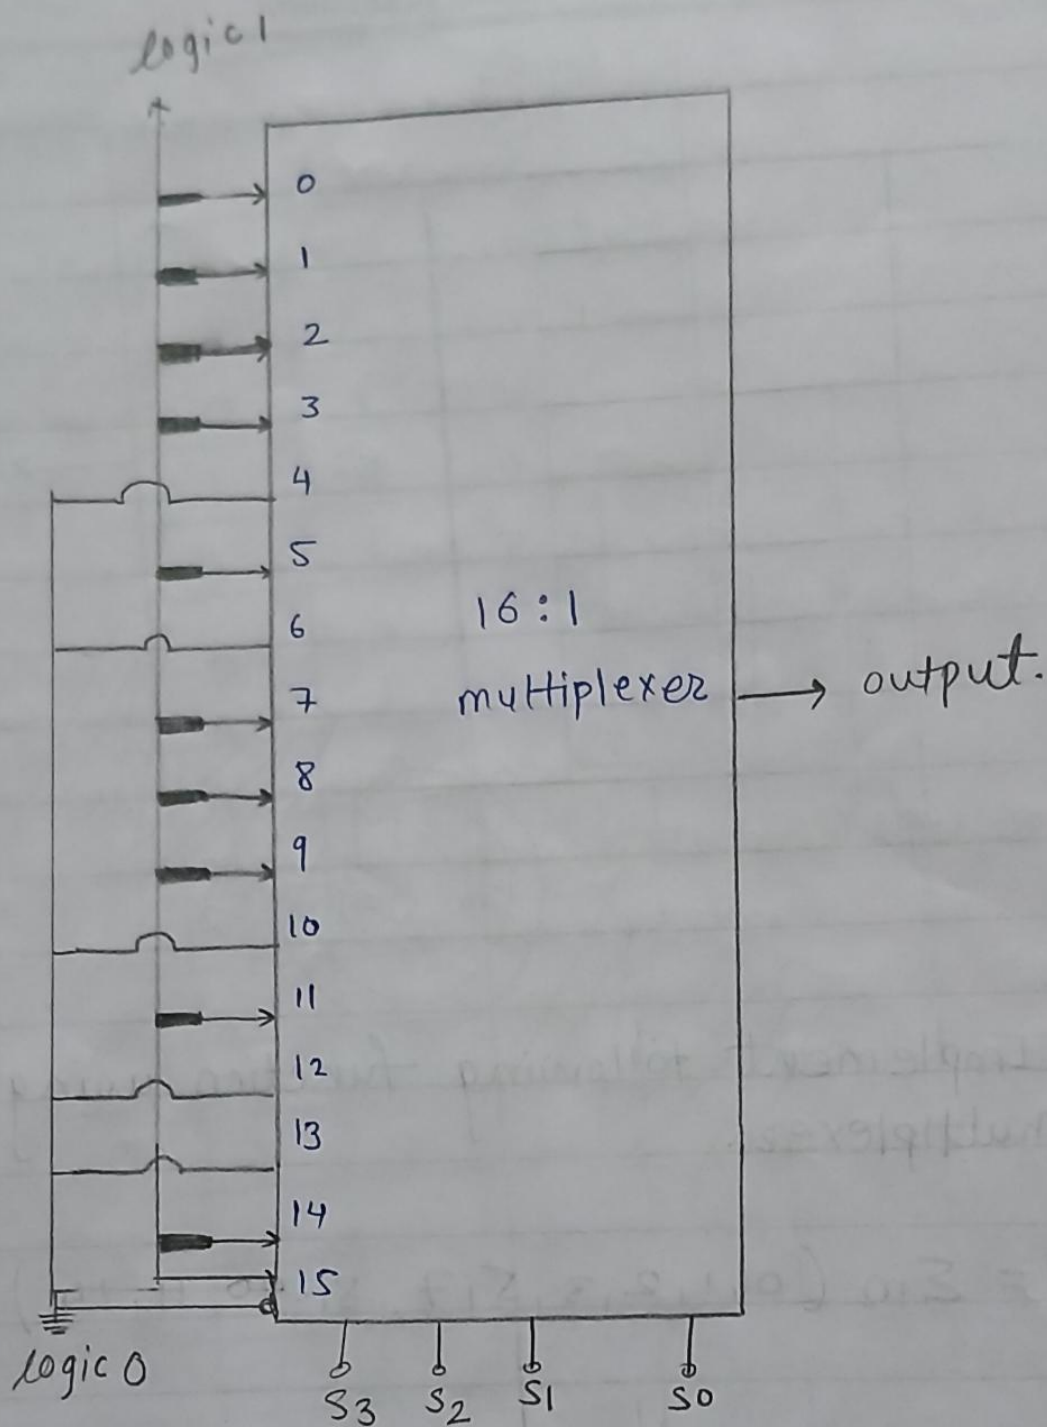 logic 1
0
1
2
3
4
5
6
7
8
9
10
11
12
13
14
15
16:1
multiplexer
output.
logic 0
S3 S2 S1 S0